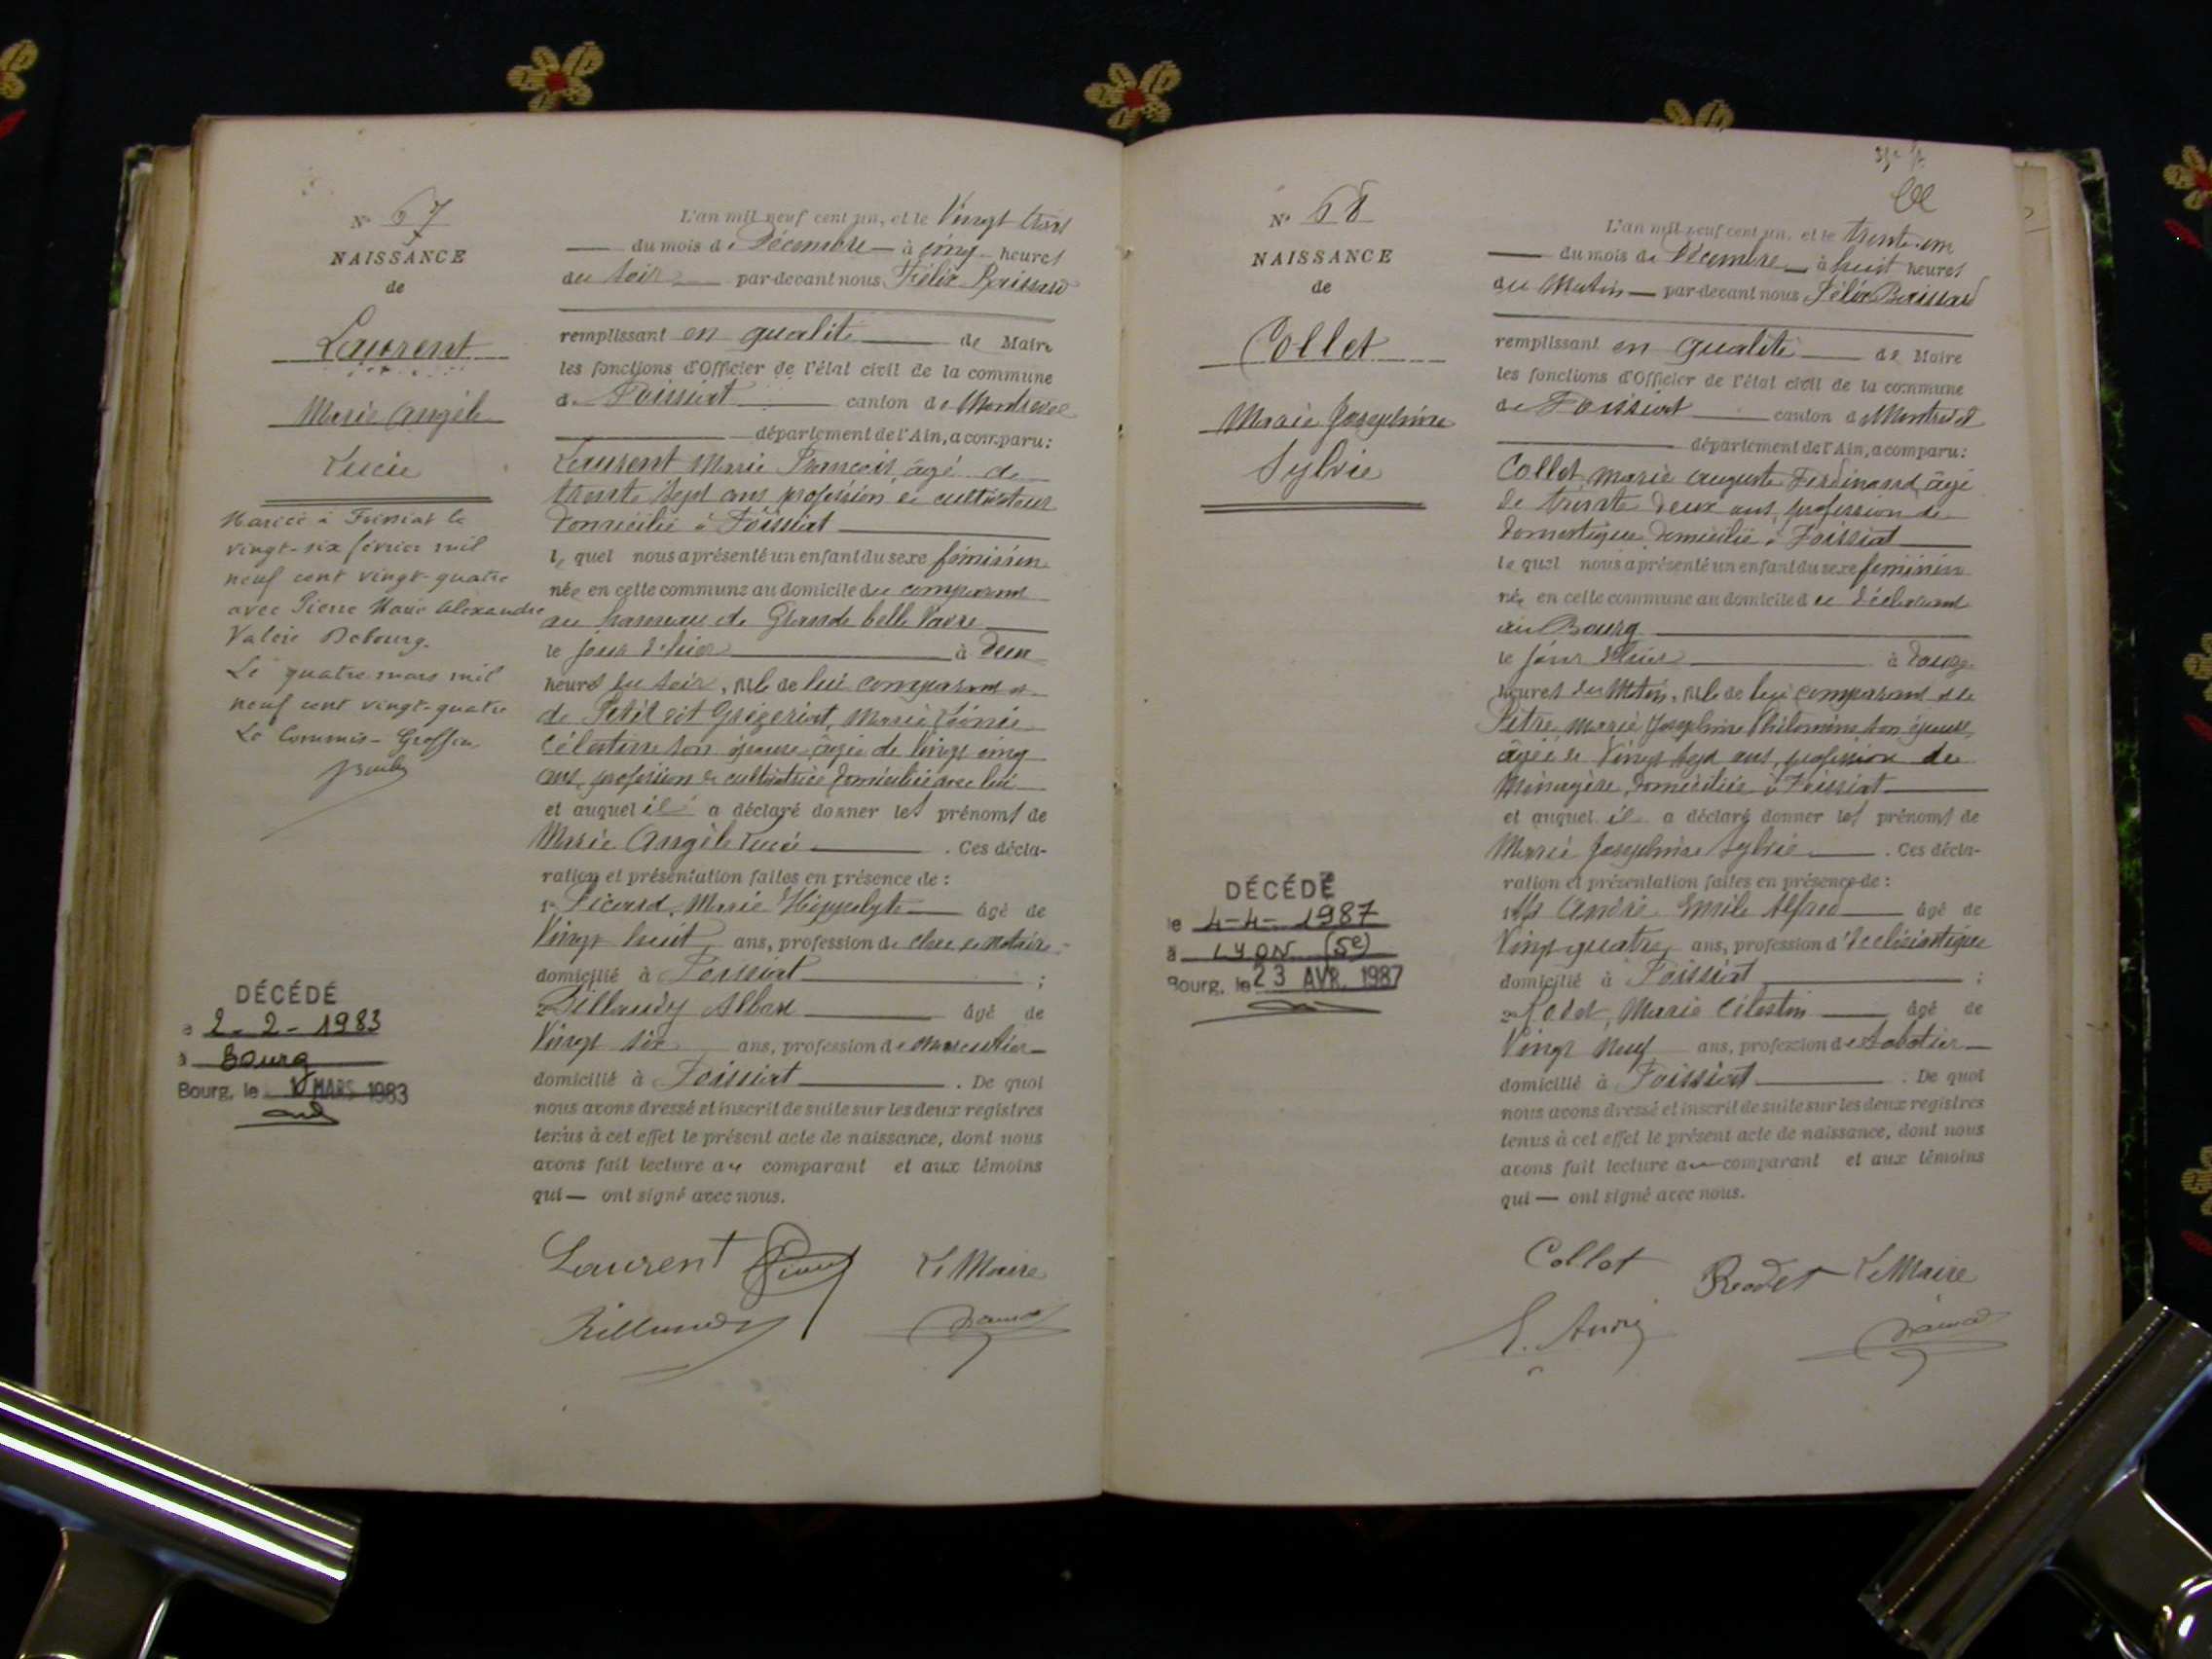 N° 67
NAISSANCE
de
Laurent
Marie Angèle
Lucie
Mariée à Foissiat le
vingt-six février mil
neuf cent vingt-quatre
avec Pierre Marie Alexandre
Valérie Debourg.
Le quatre mars mil
neuf cent vingt-quatre
Le Commis-Greffier
DÉCÉDÉ
2-2-1983
à Bourg
Bourg, le 1 MARS 1983
L'an mil neuf cent un, et le Vingt trois
du mois de Décembre à cinq heures
du soir par-devant nous Félix Boissard
remplissant en qualité de Maire
les fonctions d'Officier de l'état civil de la commune
de Foissiat canton de Montrevel
département de l'Ain, a comparu:
Laurent Marie François, âgé de
trente sept ans profession de cultivateur
domicilié à Foissiat
lequel nous a présenté un enfant du sexe féminin
née en cette commune au domicile du comparant
au hameau de Grande belle
le jour d'hier à deux
heures du soir, née de lui comparant et
de Petit dit Grézériat, Marie
Célestine son épouse âgée de vingt cinq
ans, profession de cultivatrice domiciliée avec lui
et auquel il a déclaré donner les prénoms de
Marie Angèle Lucie . Ces décla-
ration et présentation faites en présence de :
1° Picard, Marie Hippolyte âgé de
Vingt huit ans, profession de clerc de notaire
domicilié à Foissiat ;
2° Billoudy Alban âgé de
Vingt six ans, profession de
domicilié à Foissiat . De quoi
nous avons dressé et inscrit de suite sur les deux registres
tenus à cet effet le présent acte de naissance, dont nous
avons fait lecture au comparant et aux témoins
qui — ont signé avec nous.
Laurent Picard Le Maire
N° 68
NAISSANCE
de
Collet
Marie Joséphine
Sylvie
DÉCÉDÉ
le 4-4-1987
à LYON (5e)
Bourg, le 23 AVR. 1987
L'an mil neuf cent un, et le trente-un
du mois de Décembre à huit heures
du Matin par-devant nous Félix Boissard
remplissant en qualité de Maire
les fonctions d'Officier de l'état civil de la commune
de Foissiat canton de Montrevel
département de l'Ain, a comparu:
Collet, Marie Auguste Ferdinand, âgé
de trente deux ans, profession de
domestique, domicilié à Foissiat
lequel nous a présenté un enfant du sexe féminin
née en cette commune au domicile du déclarant
au Bourg
le jour d'hier à
heures du Matin, née de lui comparant et de
Pitre Marie Joséphine Philomène son épouse,
âgée de Vingt sept ans, profession de
Ménagère, domiciliée à Foissiat
et auquel il a déclaré donner les prénoms de
Marie Joséphine Sylvie . Ces décla-
ration et présentation faites en présence de :
1° André Emile Alfred âgé de
Vingt quatre ans, profession d'Ecclésiastique
domicilié à Foissiat ;
2° Rodet, Marie Célestin âgé de
Vingt neuf ans, profession de Sabotier
domicilié à Foissiat . De quoi
nous avons dressé et inscrit de suite sur les deux registres
tenus à cet effet le présent acte de naissance, dont nous
avons fait lecture au comparant et aux témoins
qui — ont signé avec nous.
Collet Rodet Le Maire
E. André